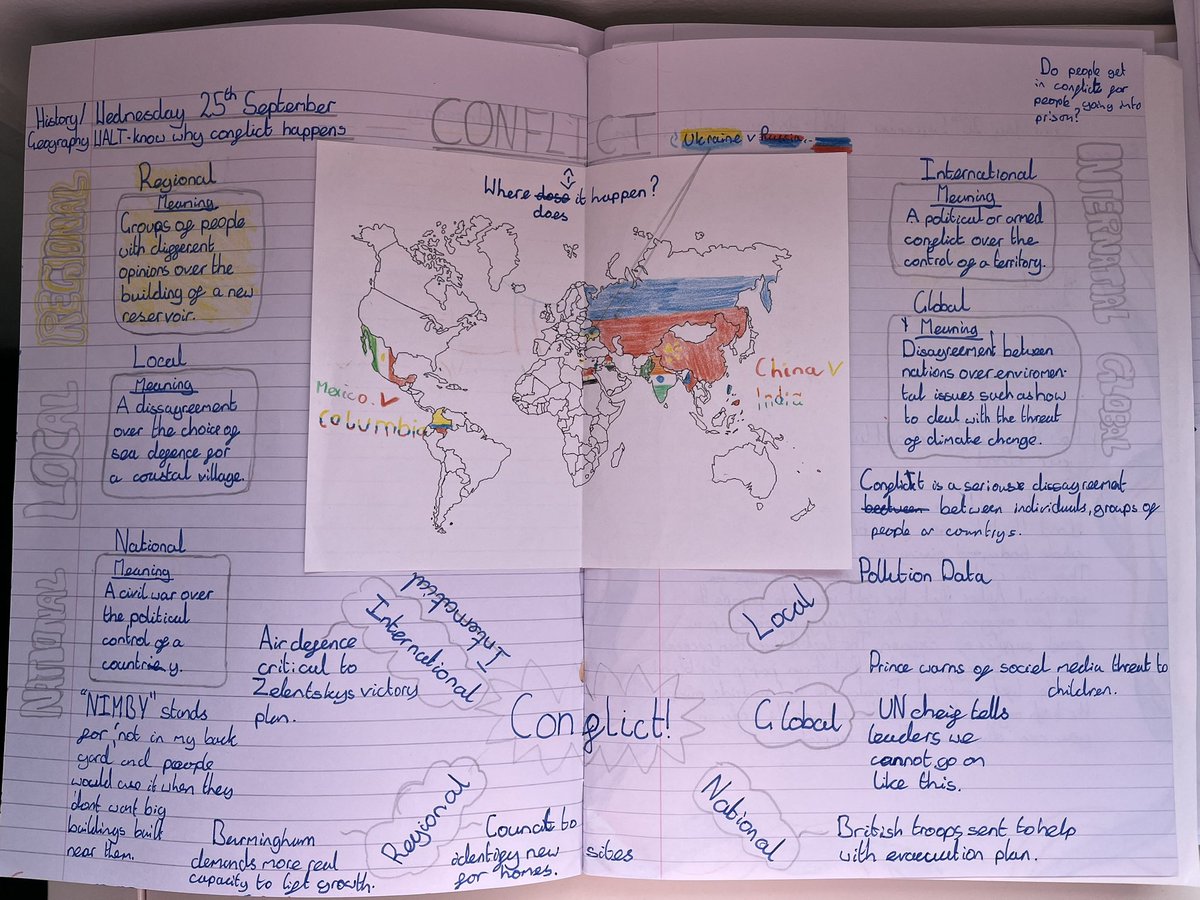 History/
Geography
Wednesday 25th September
WALT-know why conflict happens
CONFLICT
Ukraine v Russia
Do people get
in conflict for
people going into
prison?
REGIONAL
Regional
Meaning
Groups of people
with different
opinions over the
building of a new
reservoir.
LOCAL
Local
Meaning
A dissagreement
over the choice of
sea defence for
a coastal village.
NTIONAL
National
Meaning
A civil war over
the political
control of a
country.
"NIMBY" stands
for 'not in my back
yard and people
would use it when they
don't want big
buildings built
near them.
Where dose it happen?
does
Mexico. V
Columbia
China V
India
International
Meaning
A political or armed
conflict over the
control of a territory.
INTERNATIAL
Global
Meaning
Disagreement between
nations over enviromen-
tal issues such as how
to deal with the threat
of climate change.
GLOBAL
Conflict is a serious dissagreement
between between individuals, groups of
people or countrys.
Conflict!
International
International
Air defence
critical to
Zelentskys victory
plan.
Regional
Burmingham
demands more real
capacity to lift growth.
Council to
identify new sites
for homes.
Local
Pollution Data
Global
Prince warns of social media threat to
children.
UN cheif tells
leaders we
cannot go on
like this.
National
British troops sent to help
with evacuation plan.